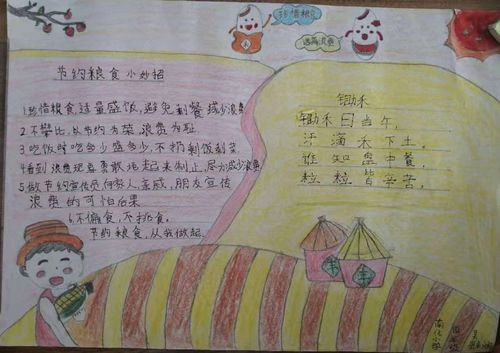 珍惜粮食
远离浪费
节约粮食小妙招
1珍惜粮食,适量盛饭,避免剩餐 减少浪费
2.不攀比,以节约为荣 浪费为耻
3.吃饭时吃多少盛多少,不扔剩饭剩菜
4看到浪费现象勇敢地起来制止,尽力减少浪费
5做节约宣传员向家人,亲戚,朋友宣传
浪费的可怕后果
6.不偏食,不挑食。
节约粮食,从我做起
锄禾
锄禾日当午,
汗滴禾下土。
谁知盘中餐,
粒粒皆辛苦。
米
丰
丰
南化小学